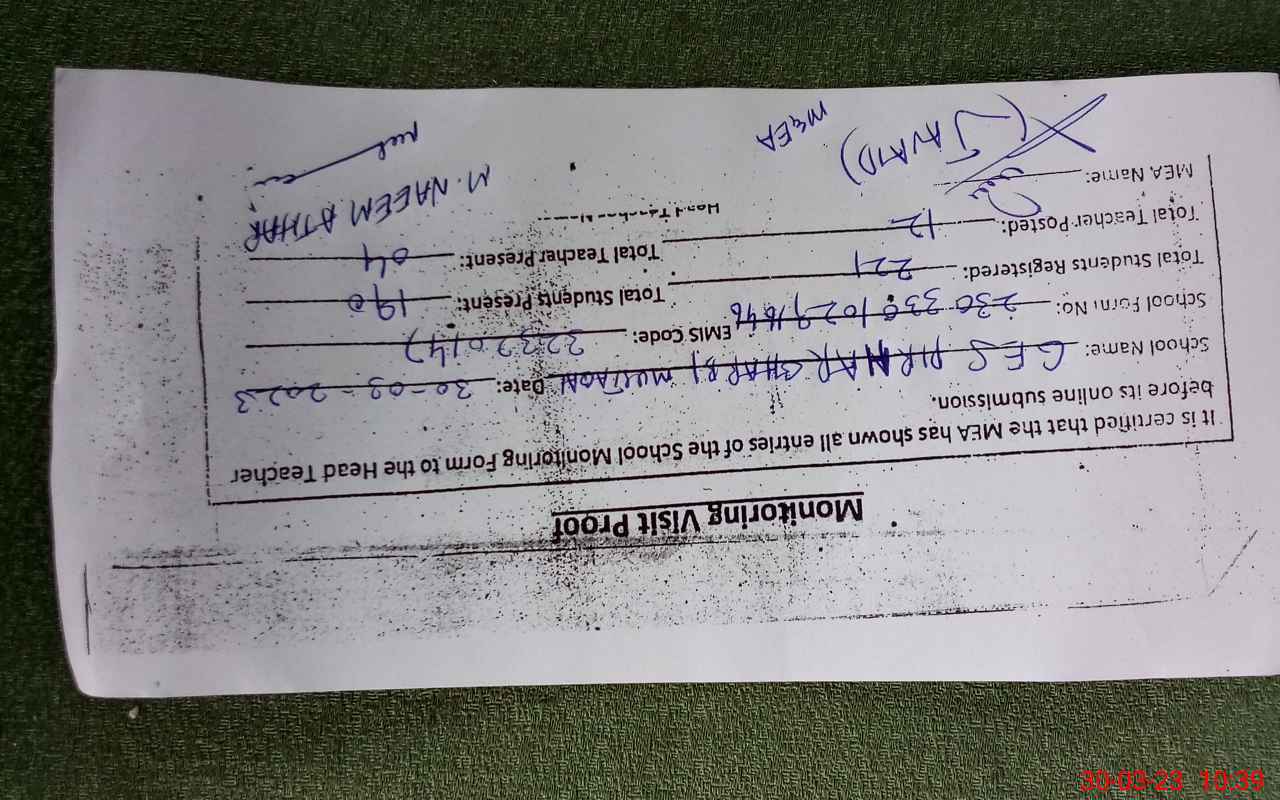 Monitoring Visit Proof
It is certified that the MEA has shown all entries of the School Monitoring Form to the Head Teacher
before its online submission.
School Name: GES PIR NAR GHARBI Date: 30-03-2023
School Form No: EMIS Code: 32320147
Total Students Registered: 221 Total Students Present: 190
Total Teacher Posted: 12 Total Teacher Present: 04
MEA Name: Head Teacher
(JAVAID) M. NAEEM ATHAR
M&EA
30-03-23 10:39